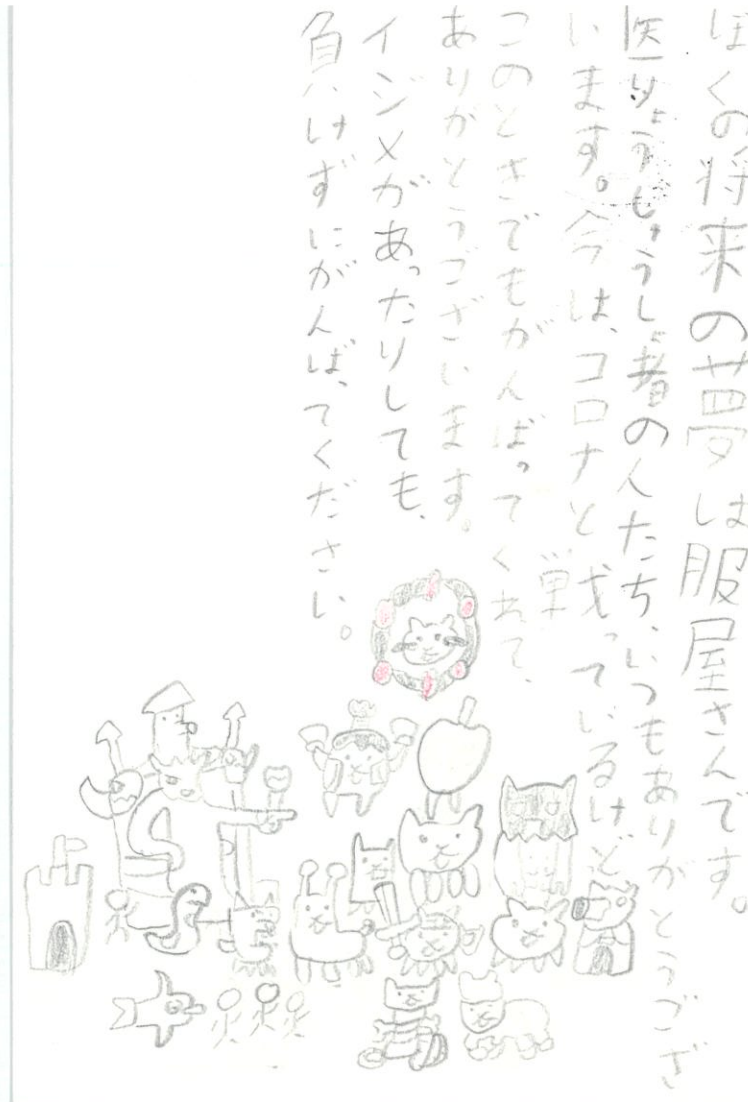 ぼくの将来の夢は服屋さんです。
医りょうじゅうじ者の人たち、いつもありがとうござ
います。今は、コロナと戦っているけど
このときでもがんばってくれて、
ありがとうございます。
イジメがあったりしても、
負けずにがんばってください。